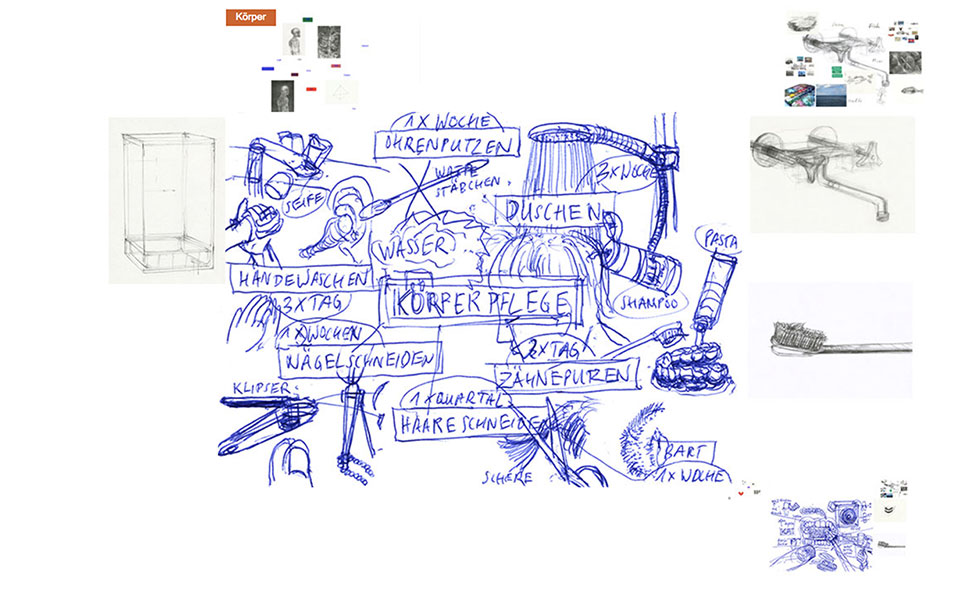 Körper
1X WOCHE
OHRENPUTZEN
WATTE
STÄBCHEN.
3X WOCHE
SEIFE
DUSCHEN
PASTA
WASSER
HÄNDEWASCHEN
3X TAG
KÖRPERPFLEGE
SHAMPOO
1X WOCHEN
NÄGELSCHNEIDEN
2X TAG
ZÄHNEPUREN
KLIPSER.
1X QUARTAL
HAARE SCHNEIDEN
BART
1X WOCHE
SCHERE